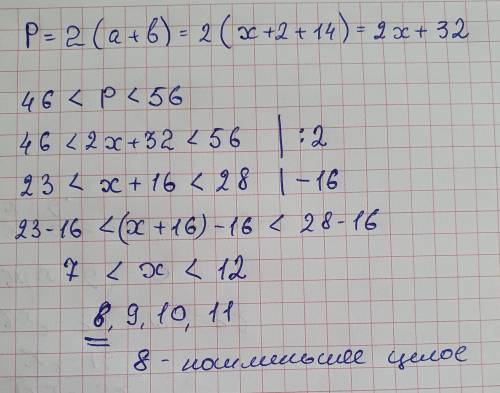 P = 2 (a + b) = 2 (x + 2 + 14) = 2x + 32
46 < P < 56
46 < 2x + 32 < 56 | : 2
23 < x + 16 < 28 | - 16
23 - 16 < (x + 16) - 16 < 28 - 16
7 < x < 12
8, 9, 10, 11
8 - наименьшее целое